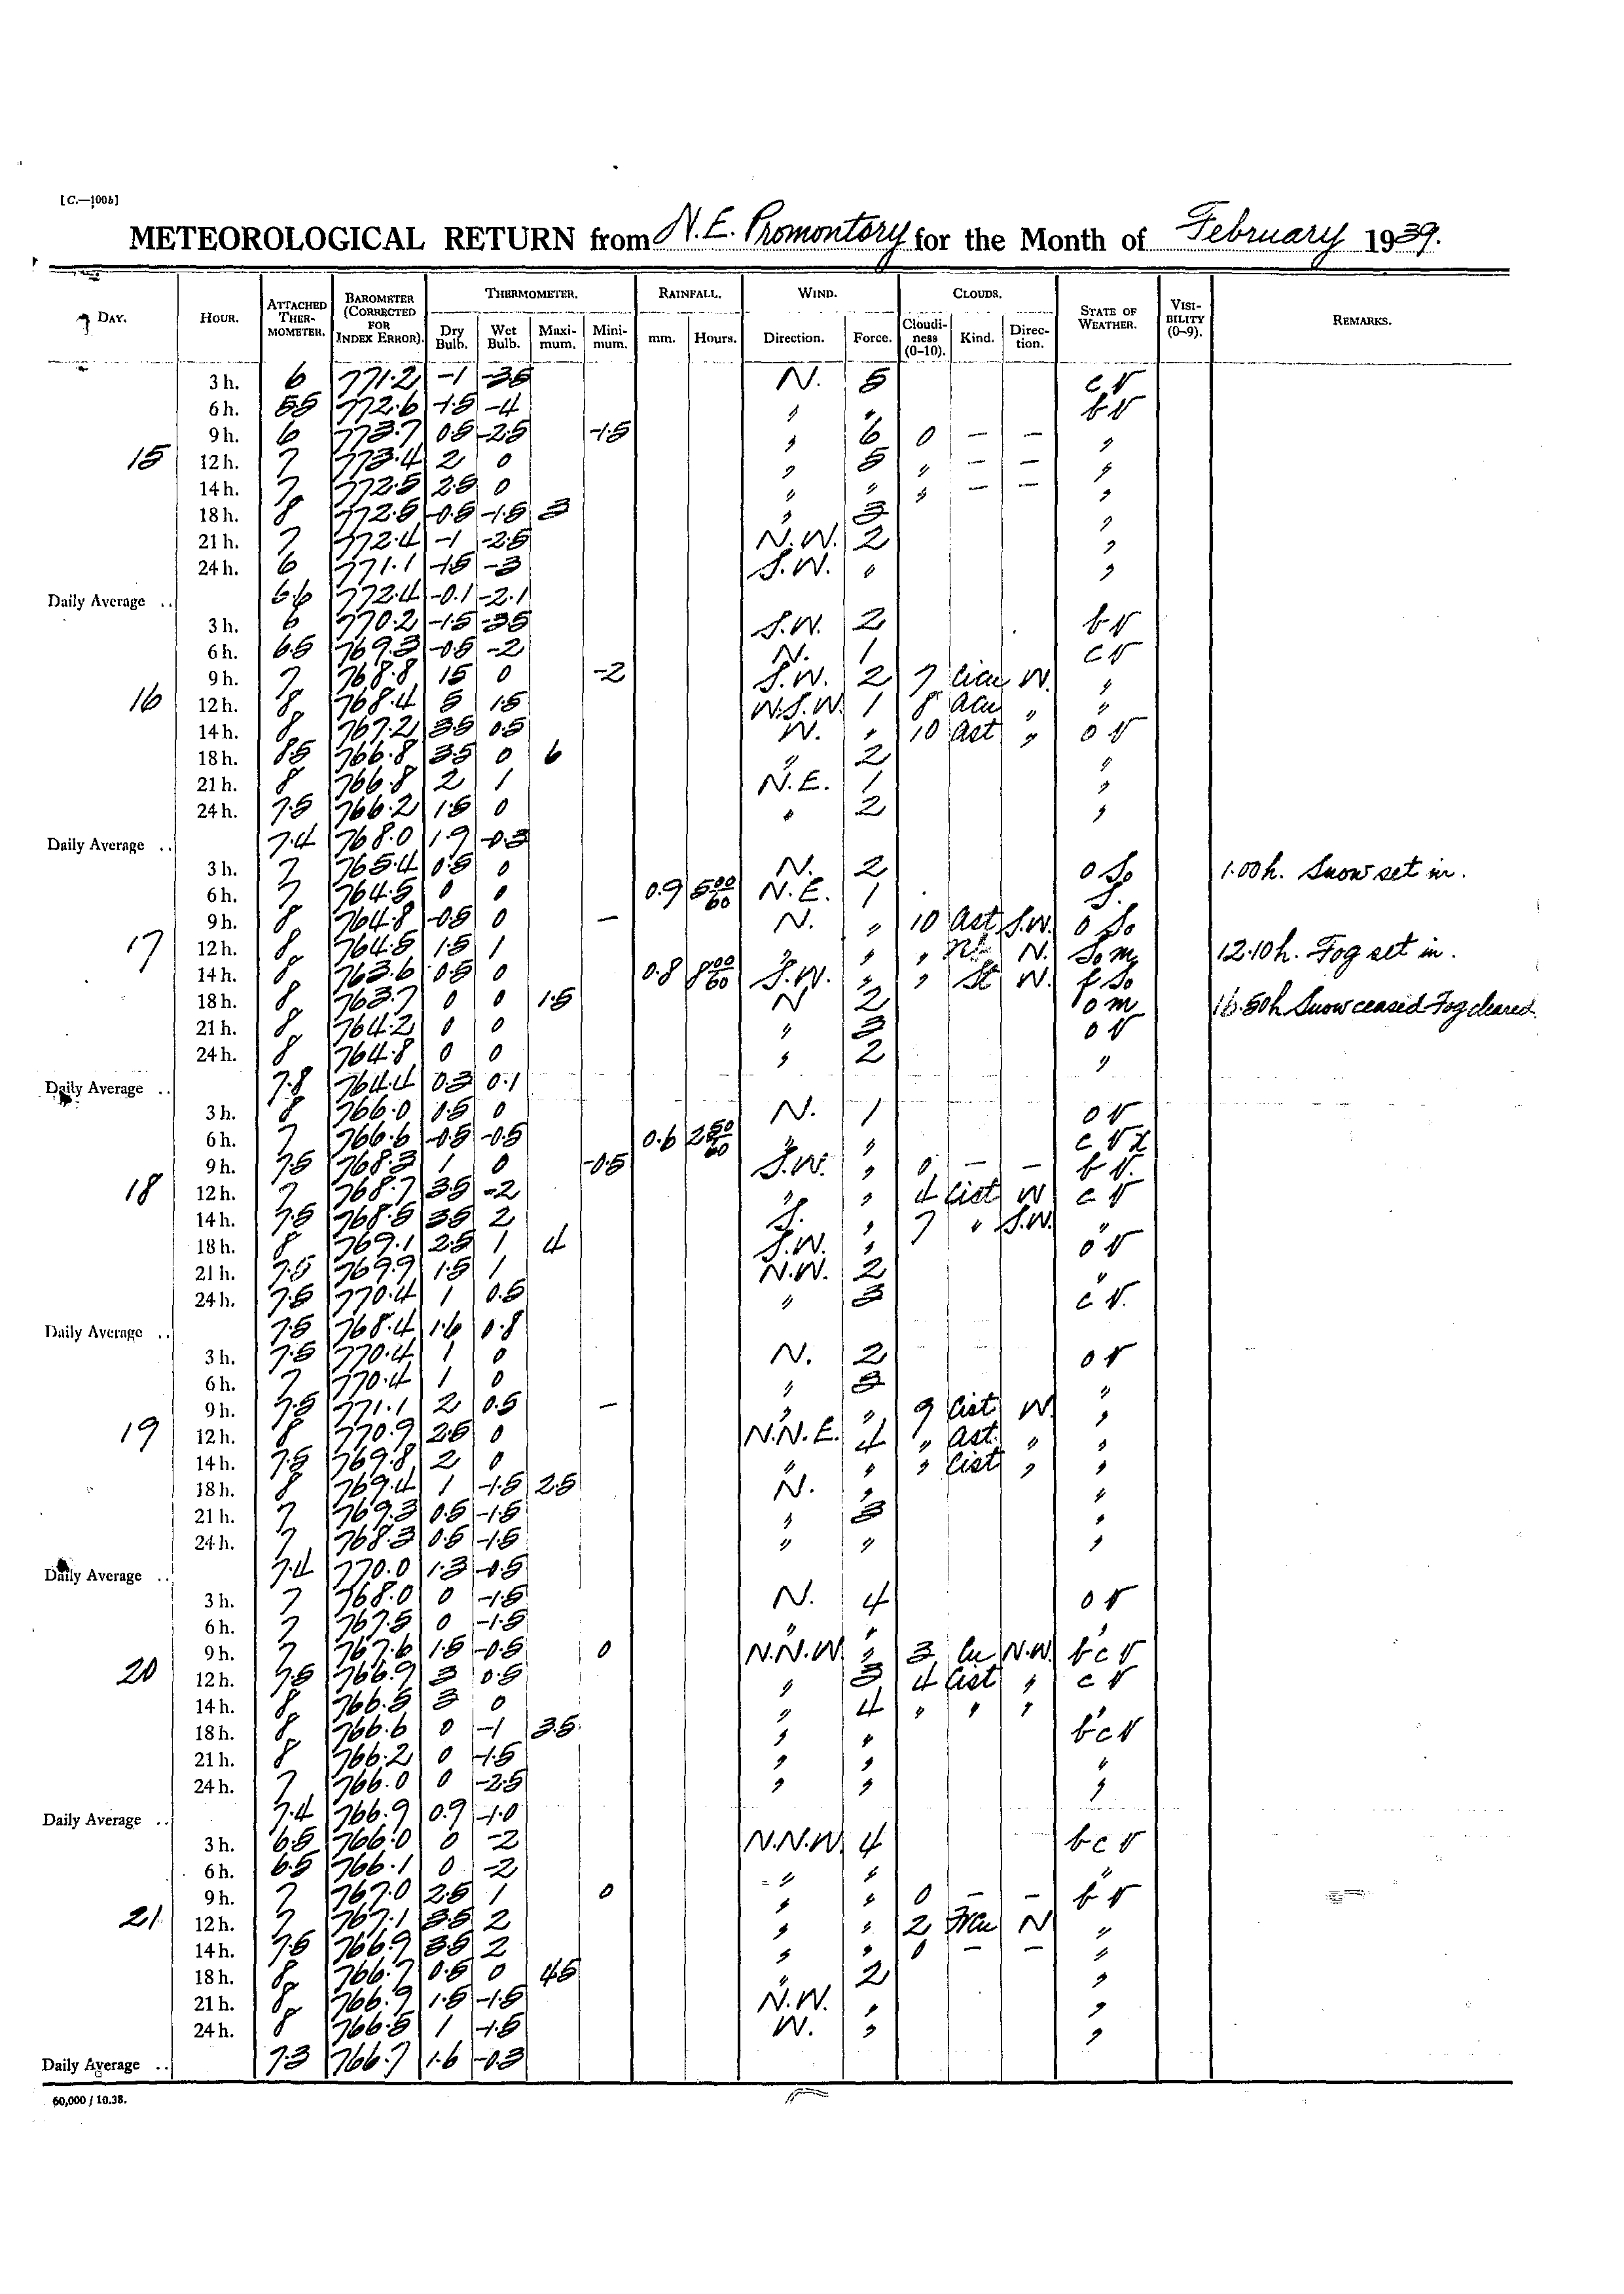 [C.—100b]
METEOROLOGICAL RETURN from N.E. Promontory for the Month of February 1939.
DAY. HOUR. ATTACHED THERMOMETER. BAROMETER (CORRECTED FOR INDEX ERROR). THERMOMETER. RAINFALL. WIND. CLOUDS. STATE OF WEATHER. VISIBILITY (0–9). REMARKS.
Dry Bulb. Wet Bulb. Maximum. Minimum. mm. Hours. Direction. Force. Cloudiness (0–10). Kind. Direction.
3 h. 6 771.2 -1 -3.5 N. 5 c v
6 h. 5.5 772.6 -1.5 -4 〃 〃 b v
9 h. 6 773.7 0.5 -2.5 -1.5 〃 6 0 — — 〃
15 12 h. 7 773.4 2 0 〃 5 〃 — — 〃
14 h. 7 772.5 2.5 0 〃 〃 〃 — — 〃
18 h. 8 772.5 -0.5 -1.5 3 〃 3 〃
21 h. 7 772.4 -1 -2.5 N.W. 2 〃
24 h. 6 771.1 -1.5 -3 S.W. 〃 〃
Daily Average .. 6.6 772.4 -0.1 -2.1
3 h. 6 770.2 -1.5 -3.5 S.W. 2 b v
6 h. 6.5 769.3 -0.5 -2 N. 1 c v
9 h. 7 768.8 1.5 0 -2 S.W. 2 7 Cicu W. 〃
16 12 h. 8 768.4 5 1.5 W.S.W. 1 8 Acu 〃 〃
14 h. 8 767.2 3.5 0.5 W. 〃 10 Ast 〃 o v
18 h. 8.5 766.8 3.5 0 6 〃 2 〃
21 h. 8 766.8 2 1 N.E. 1 〃
24 h. 7.5 766.2 1.5 0 〃 2 〃
Daily Average .. 7.4 768.0 1.9 -0.3
3 h. 7 765.4 0.5 0 N. 2 o So 1.00h. Snow set in.
6 h. 7 764.5 0 0 0.9 5 00/60 N.E. 1 S.
9 h. 8 764.8 -0.5 0 — N. 〃 10 Ast S.W. o So
17 12 h. 8 764.5 1.5 1 〃 〃 〃 N. So m 12.10h. Fog set in.
14 h. 8 763.6 0.5 0 0.8 8 00/60 S.W. 〃 〃 St N. f So
18 h. 8 763.7 0 0 1.5 N 2 o m 16.50h Snow ceased Fog cleared.
21 h. 8 764.2 0 0 〃 3 o v
24 h. 8 764.8 0 0 〃 2 〃
Daily Average .. 7.8 764.4 0.3 0.1
3 h. 8 766.0 0.5 0 N. 1 o v
6 h. 7 766.6 -0.5 -0.5 0.6 2 50/60 〃 〃 c v
9 h. 7.5 768.3 1 0 -0.5 S.W. 〃 0 — — b v.
18 12 h. 7 768.7 3.5 -2 〃 〃 4 Cist W c v
14 h. 7.5 768.5 3.5 2 S. 〃 7 〃 S.W. 〃
18 h. 8 769.1 2.5 1 4 S.W. 〃 o v
21 h. 7.5 769.9 1.5 1 N.W. 2 〃
24 h. 7.5 770.4 1 0.5 〃 3 c v.
Daily Average .. 7.5 768.4 1.6 0.8
3 h. 7.5 770.4 1 0 N. 2 o v
6 h. 7 770.4 1 0 〃 3 〃
9 h. 7.5 771.1 2 0.5 — 〃 〃 9 Cist W. 〃
19 12 h. 8 770.9 2.5 0 N.N.E. 4 〃 Ast. 〃 〃
14 h. 7.5 769.8 2 0 〃 〃 〃 Cist 〃 〃
18 h. 8 769.4 1 -1.5 2.5 N. 〃 〃
21 h. 7 769.3 0.5 -1.5 〃 3 〃
24 h. 7 768.3 0.5 -1.5 〃 〃 〃
Daily Average .. 7.4 770.0 1.3 -0.5
3 h. 7 768.0 0 -1.5 N. 4 o v
6 h. 7 767.5 0 -1.5 〃 〃 〃
9 h. 7 767.6 1.5 -0.5 0 N.N.W. 〃 3 Cu N.W. b c v
20 12 h. 7.5 766.9 3 0.5 〃 3 4 Cist 〃 c v
14 h. 8 766.5 3 0 〃 4 〃 〃 〃 〃
18 h. 8 766.6 0 -1 3.5 〃 〃 b c v
21 h. 8 766.2 0 -1.5 〃 〃 〃
24 h. 7 766.0 0 -2.5 〃 〃 〃
Daily Average .. 7.4 766.9 0.9 -1.0
3 h. 6.5 766.0 0 -2 N.N.W. 4 b c v
6 h. 6.5 766.1 0 -2 〃 〃 〃
9 h. 7 767.0 2.5 1 0 〃 〃 0 — — b v
21 12 h. 7 767.1 3.5 2 〃 〃 2 Frcu N 〃
14 h. 7.5 766.9 3.5 2 〃 〃 0 — — 〃
18 h. 8 766.7 0.5 0 4.5 〃 2 〃
21 h. 8 766.9 1.5 -1.5 N.W. 〃 〃
24 h. 8 766.5 1 -1.5 W. 〃 〃
Daily Average .. 7.3 766.7 1.6 -0.3
60,000 / 10.38.